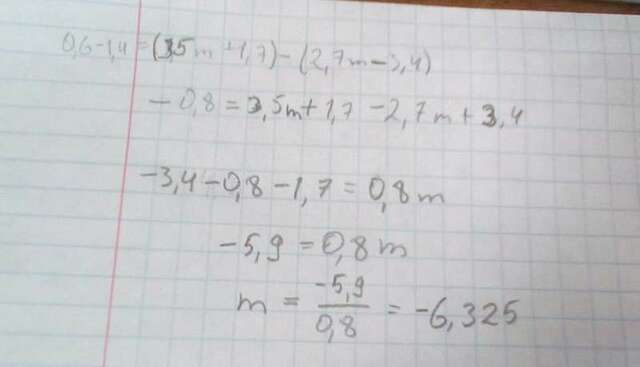 0,6-1,4=(3,5m+1,7)-(2,7m-3,4)
-0,8=3,5m+1,7-2,7m+3,4
-3,4-0,8-1,7=0,8m
-5,9=0,8m
m = -5,9/0,8 = -6,325